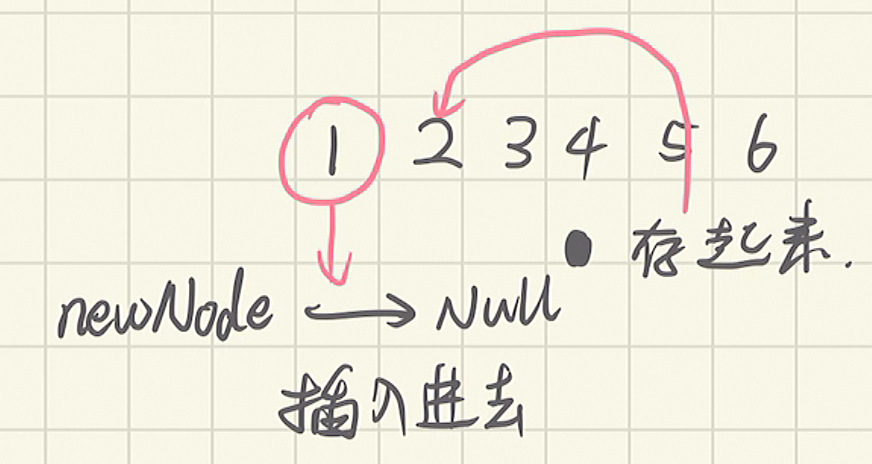 1 2 3 4 5 6
存起来.
newNode → Null
插入进去